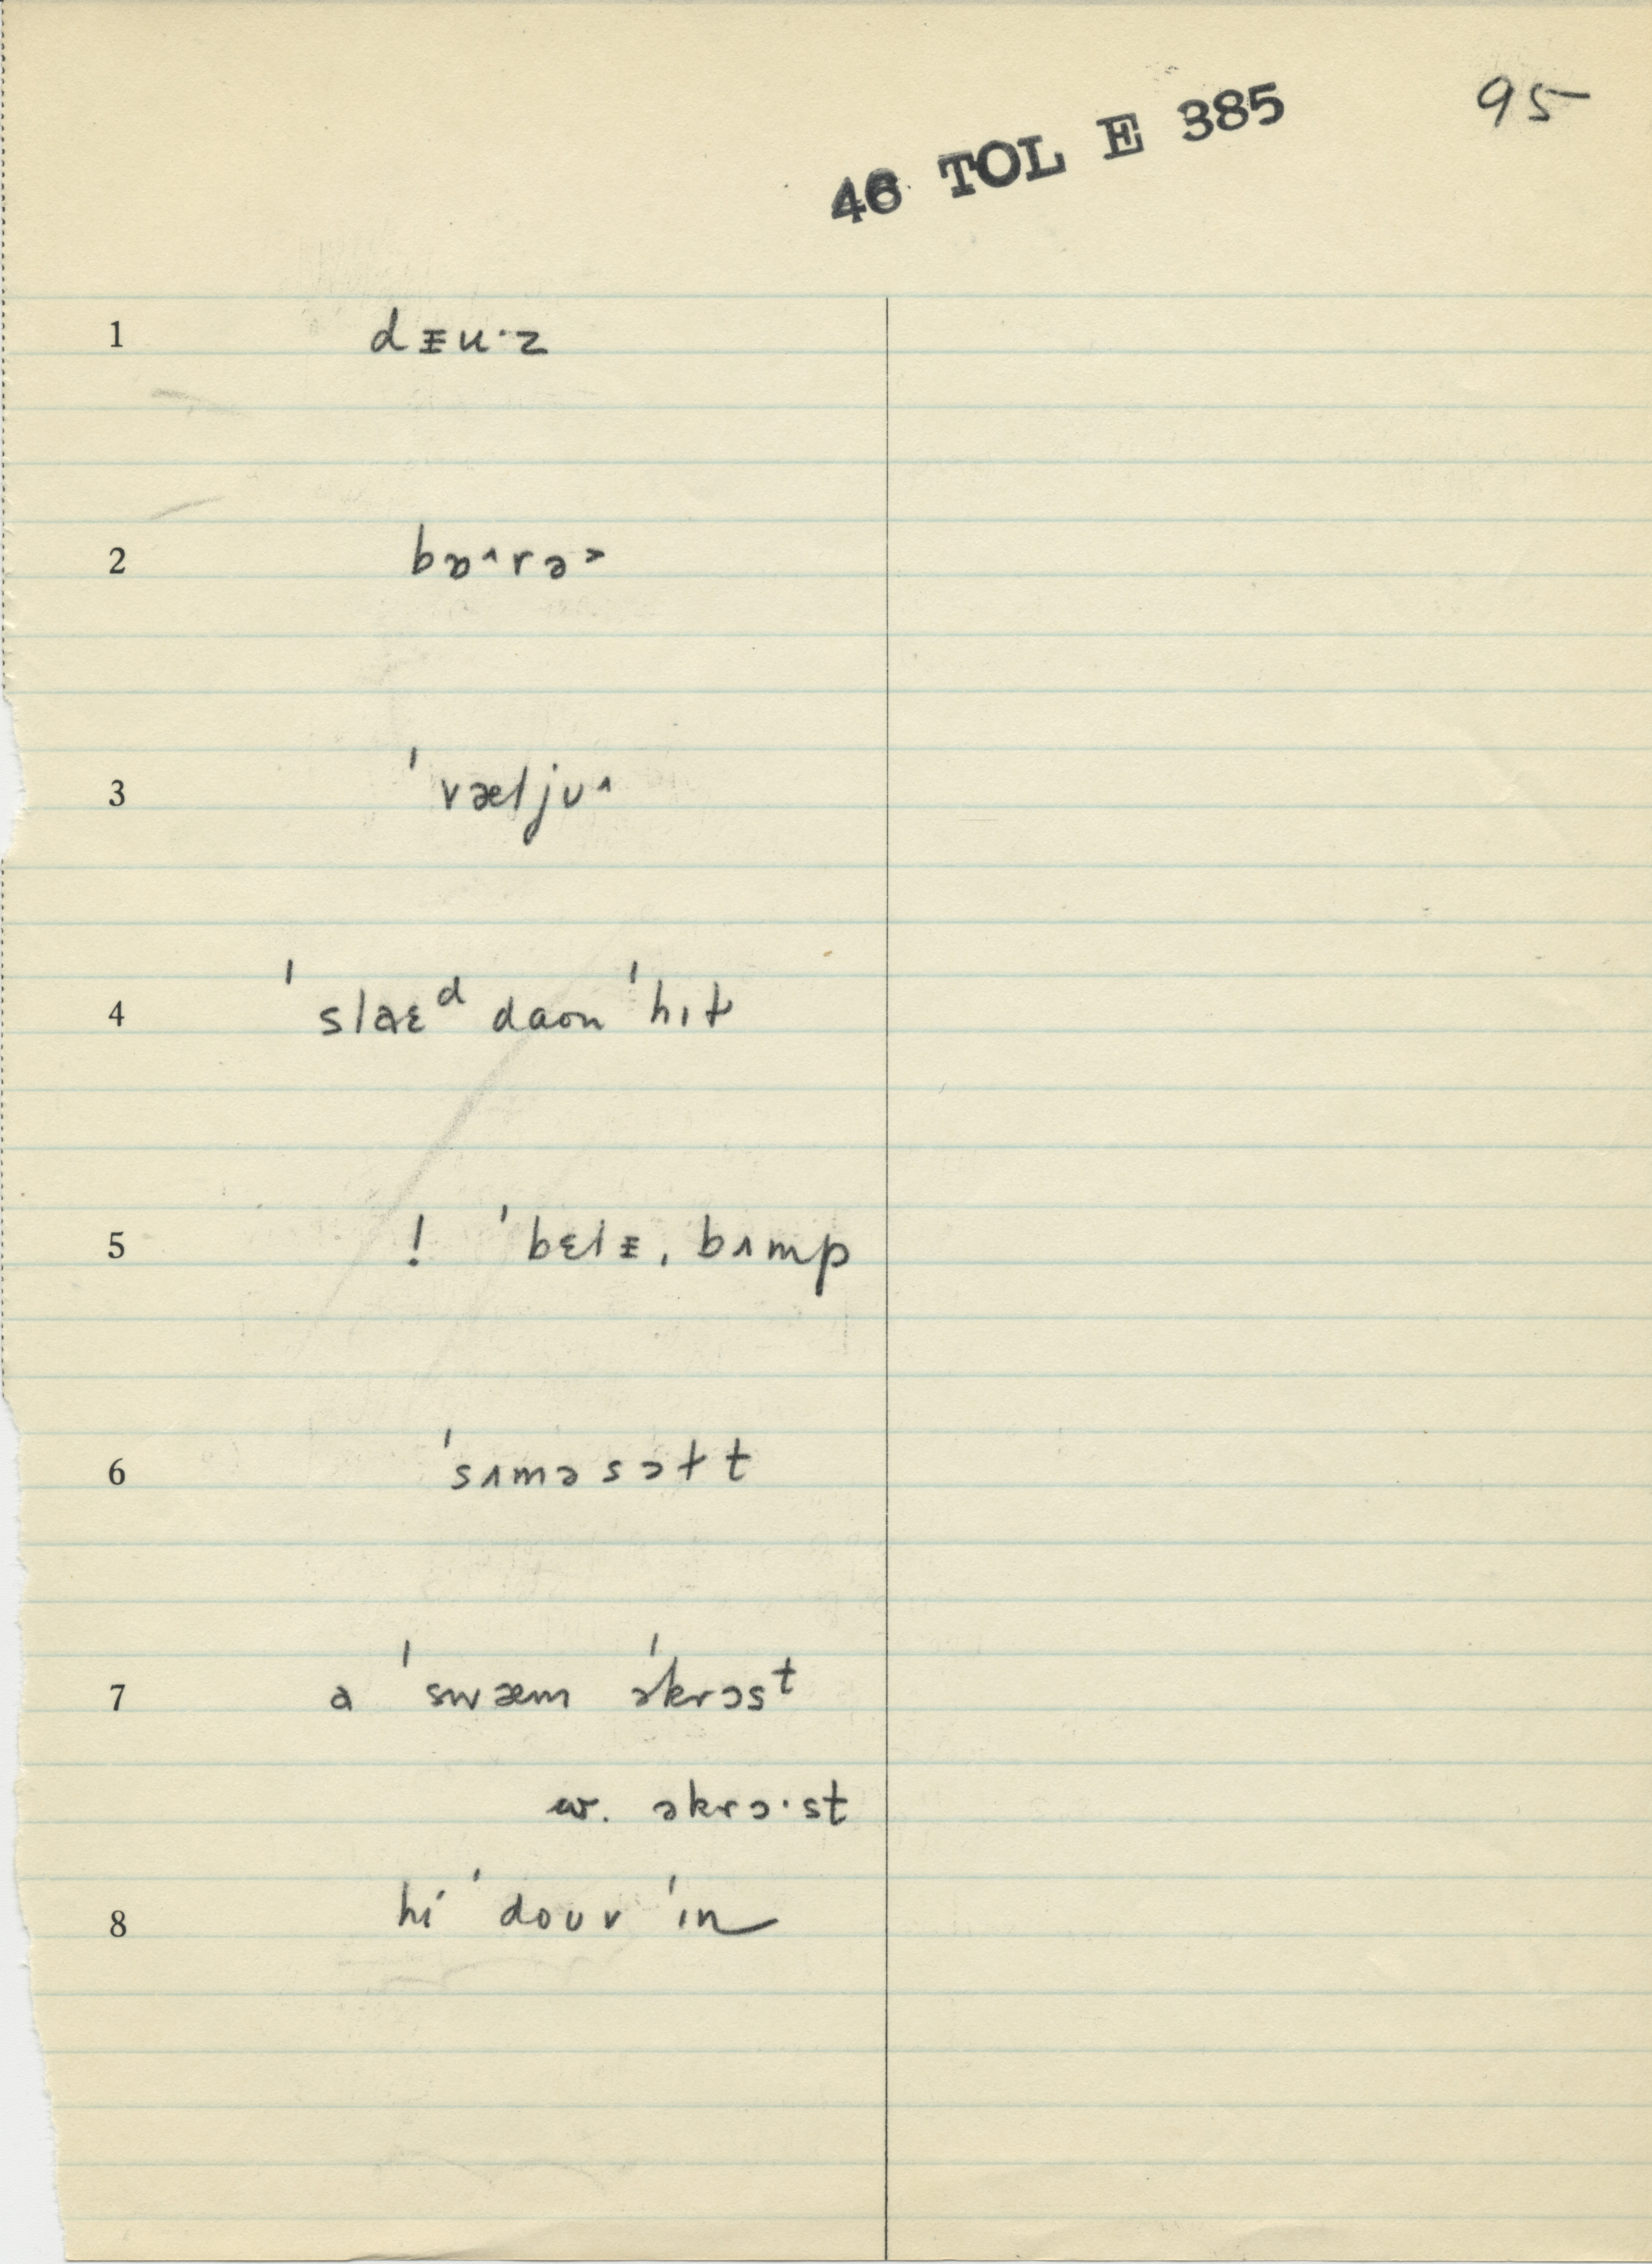 46 TOL E 385 95
1 dᵻu·z
2 bɒ˄rə˃
3 ˈvæljʊ˄
4 ˈslæɛᵈ daʊn ˈhɪɫ
5 ! ˈbɛlᵻˌbʌmp
6 ˈsʌməsɔɫt
7 a ˈswæm əˈkrɔsᵗ
w. əkrɔ·st
8 hi ˈdoʊv ˈɪn